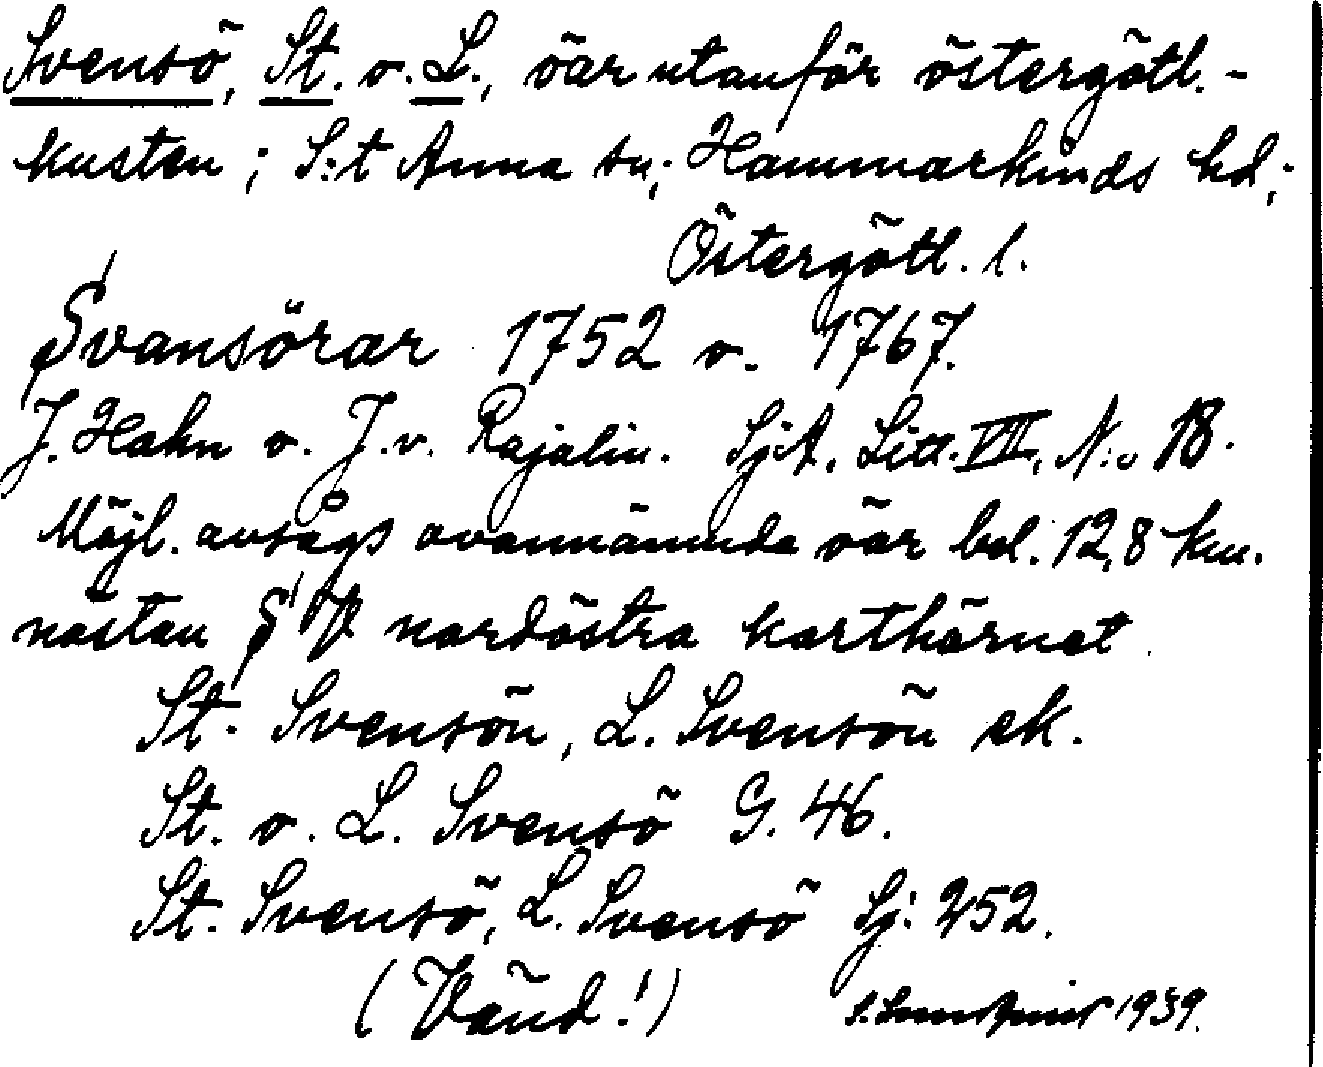 Svensö, St. o. L., öar utanför östergötl.-
kusten; S:t Anna sn; Hammarkinds hd;
Östergötl. l.
Svansörar 1752 o. 1767.
J. Hahn o. J. v. Rajalin. SjA. Litt. VIII, N:o 18.
Möjl. avsågs ovannämnda öar bel. 12,8 km.
nästan S V nordöstra karthörnet.
St. Svensön, L. Svensön ek.
St. o. L. Svensö G. 46.
St. Svensö, L. Svensö Sj: 252.
(Vänd!) 1939.